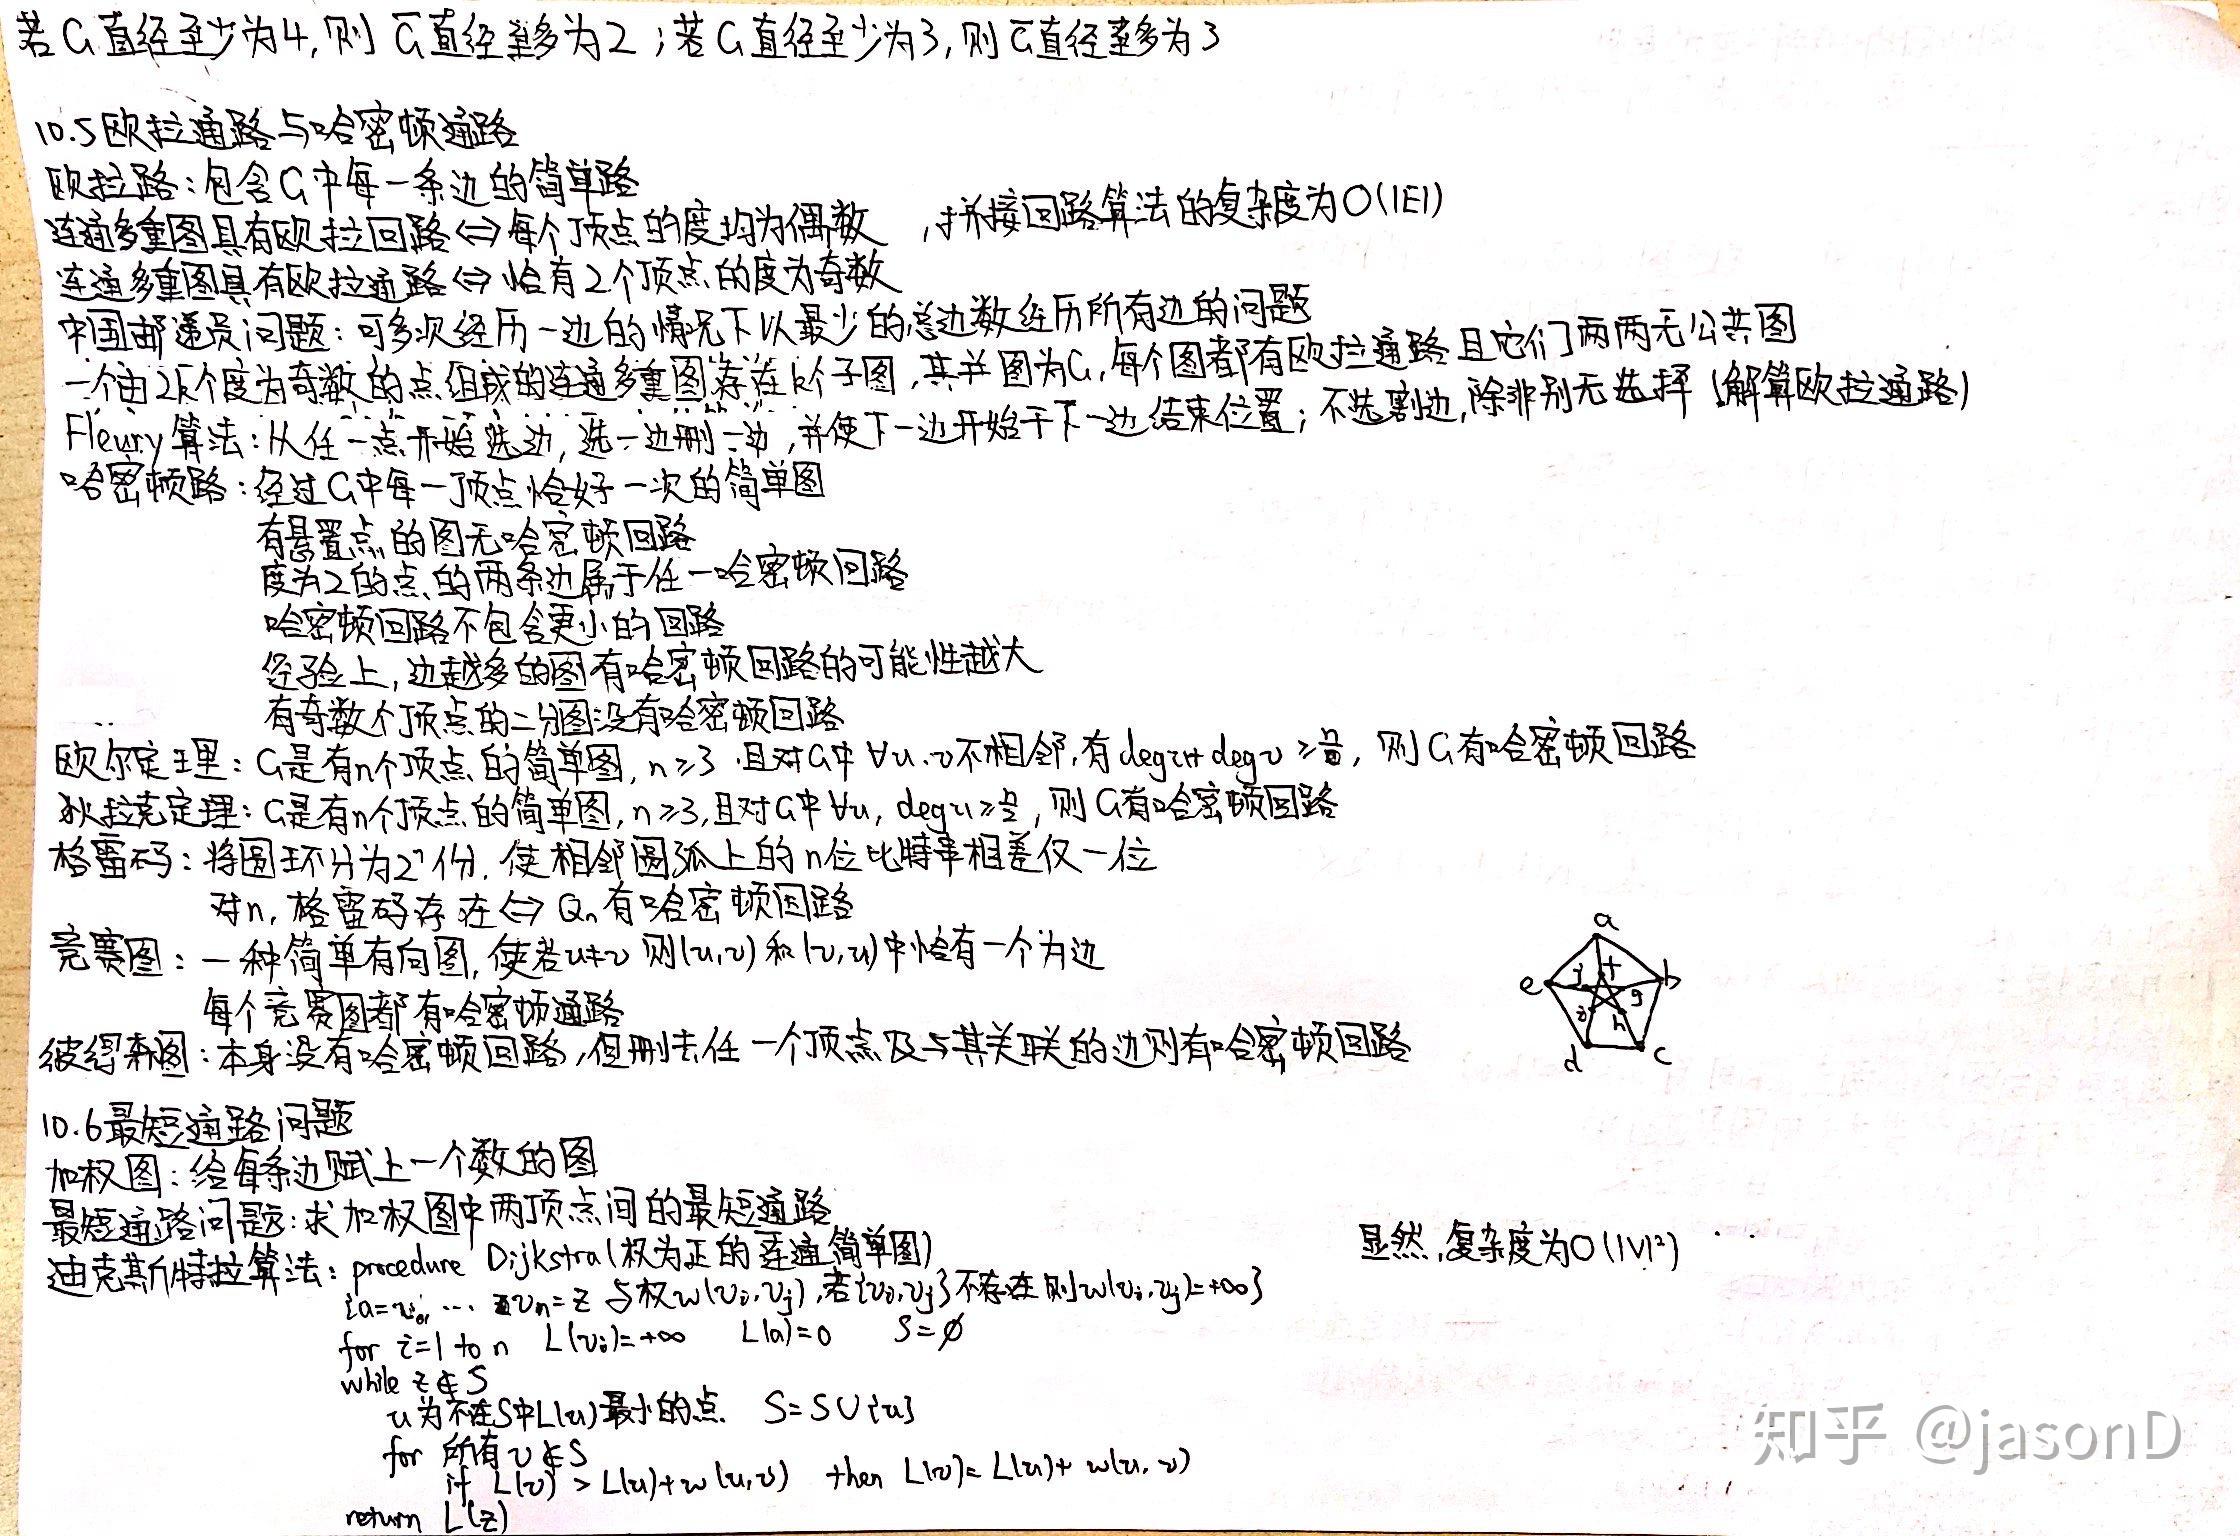 若G直径至少为4,则G̅直径至多为2;若G直径至少为3,则G̅直径至多为3
10.5欧拉通路与哈密顿通路
欧拉路:包含G中每一条边的简单路
连通多重图具有欧拉回路⇔每个顶点的度均为偶数 ,拼接回路算法的复杂度为O(|E|)
连通多重图具有欧拉通路⇔恰有2个顶点的度为奇数
中国邮递员问题:可多次经历一边的情况下以最少的总边数经历所有边的问题
一个由2k个度为奇数的点组成的连通多重图存在k个子图,其并图为G,每个图都有欧拉通路且它们两两无公共图
Fleury算法:从任一点开始选边,选一边删一边,并使下一边开始于下一边结束位置;不选割边,除非别无选择(解算欧拉通路)
哈密顿路:经过G中每一顶点恰好一次的简单图
有悬置点的图无哈密顿回路
度为2的点的两条边属于任一哈密顿回路
哈密顿回路不包含更小的回路
经验上,边越多的图有哈密顿回路的可能性越大
有奇数个顶点的二分图没有哈密顿回路
欧尔定理:G是有n个顶点的简单图,n≥3 且对G中∀u,v不相邻,有degu+degv≥, 则G有哈密顿回路
狄拉克定理:G是有n个顶点的简单图,n≥3,且对G中∀u, degu≥n/2, 则G有哈密顿回路
格雷码:将圆环分为2ⁿ份,使相邻圆弧上的n位比特串相差仅一位
对n,格雷码存在⇔Qn有哈密顿回路
竞赛图:一种简单有向图,使若u≠v则(u,v)和(v,u)中恰有一个为边
每个竞赛图都有哈密顿通路
彼得森图:本身没有哈密顿回路,但删去任一个顶点及与其关联的边则有哈密顿回路
a
e j f b
g
i h
d c
10.6最短通路问题
加权图:给每条边赋上一个数的图
最短通路问题:求加权图中两顶点间的最短通路
迪克斯特拉算法:procedure Dijkstra(权为正的连通简单图) 显然,复杂度为O(|V|²)
{a=v₀, … vn=z 与权w(vi,vj),若{vi,vj}不存在则w(vi,vj)=+∞}
for i=1 to n L(vi)=+∞ L(a)=0 S=∅
while z∉S
u为不在S中L(u)最小的点 S=S∪{u}
for 所有v∉S
if L(v)>L(u)+w(u,v) then L(v)=L(u)+w(u,v)
return L(z)
知乎 @jasonD